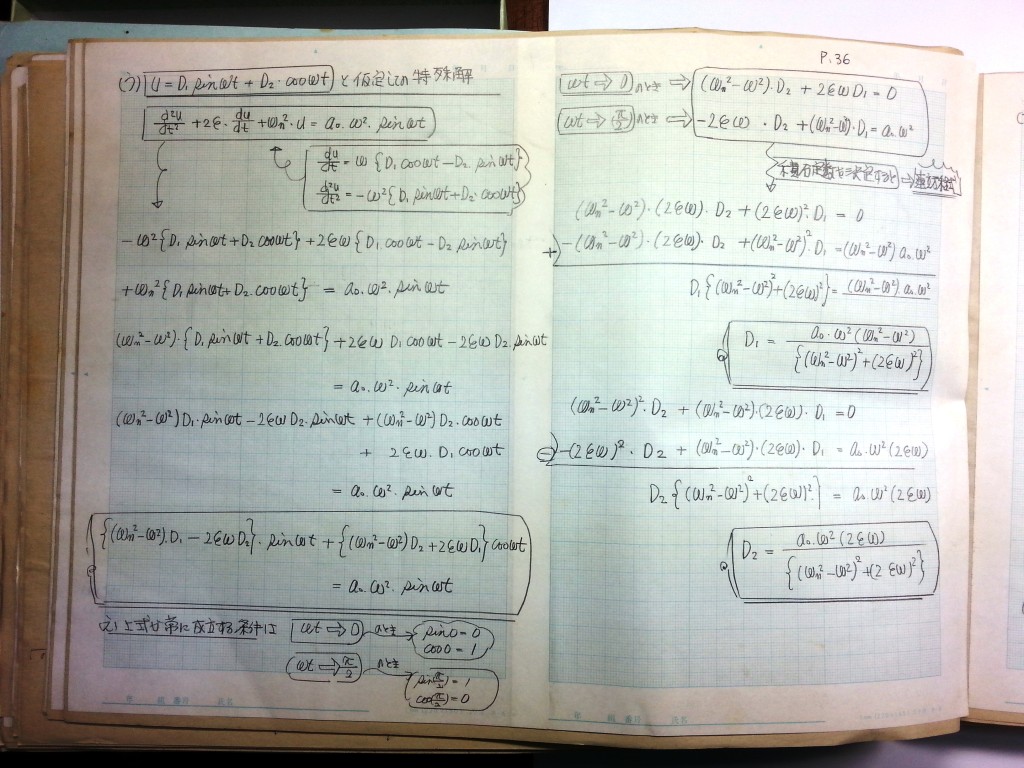 U = D₁ sin ωt + D₂·cos ωt と仮定しての特殊解
d²u/dt² + 2ε·du/dt + ωn²·u = a₀·ω²·sin ωt
du/dt = ω{D₁ cos ωt − D₂·sin ωt}
d²u/dt² = −ω²{D₁ sin ωt + D₂ cos ωt}
−ω²{D₁ sin ωt + D₂ cos ωt} + 2εω{D₁ cos ωt − D₂ sin ωt}
+ωn²{D₁ sin ωt + D₂·cos ωt} = a₀·ω²·sin ωt
(ωn²−ω²)·{D₁ sin ωt + D₂ cos ωt} + 2εω D₁ cos ωt − 2εω D₂·sin ωt
= a₀·ω²·sin ωt
(ωn²−ω²)D₁·sin ωt − 2εω D₂·sin ωt + (ωn²−ω²)D₂·cos ωt
+ 2εω·D₁ cos ωt
= a₀·ω²·sin ωt
{(ωn²−ω²)·D₁ − 2εω D₂}·sin ωt + {(ωn²−ω²)D₂ + 2εω D₁} cos ωt
= a₀·ω²·sin ωt
上式が常に成立する条件は ωt → 0 のとき sin 0 = 0
cos 0 = 1
ωt → π/2 のとき sin(π/2) = 1
cos(π/2) = 0
P.36
ωt → 0 のとき ⇒ (ωn²−ω²)·D₂ + 2εω D₁ = 0
ωt → (π/2) のとき ⇒ −2εω·D₂ + (ωn²−ω²)·D₁ = a₀·ω²
(ωn²−ω²)·(2εω)·D₂ + (2εω)²·D₁ = 0
+) −(ωn²−ω²)·(2εω)·D₂ + (ωn²−ω²)²·D₁ = (ωn²−ω²) a₀·ω²
D₁{(ωn²−ω²)² + (2εω)²} = (ωn²−ω²) a₀·ω²
D₁ = a₀·ω²(ωn²−ω²) / {(ωn²−ω²)² + (2εω)²}
(ωn²−ω²)²·D₂ + (ωn²−ω²)·(2εω)·D₁ = 0
−) −(2εω)²·D₂ + (ωn²−ω²)·(2εω)·D₁ = a₀·ω²(2εω)
D₂{(ωn²−ω²)² + (2εω)²} = a₀·ω²(2εω)
D₂ = a₀·ω²(2εω) / {(ωn²−ω²)² + (2εω)²}